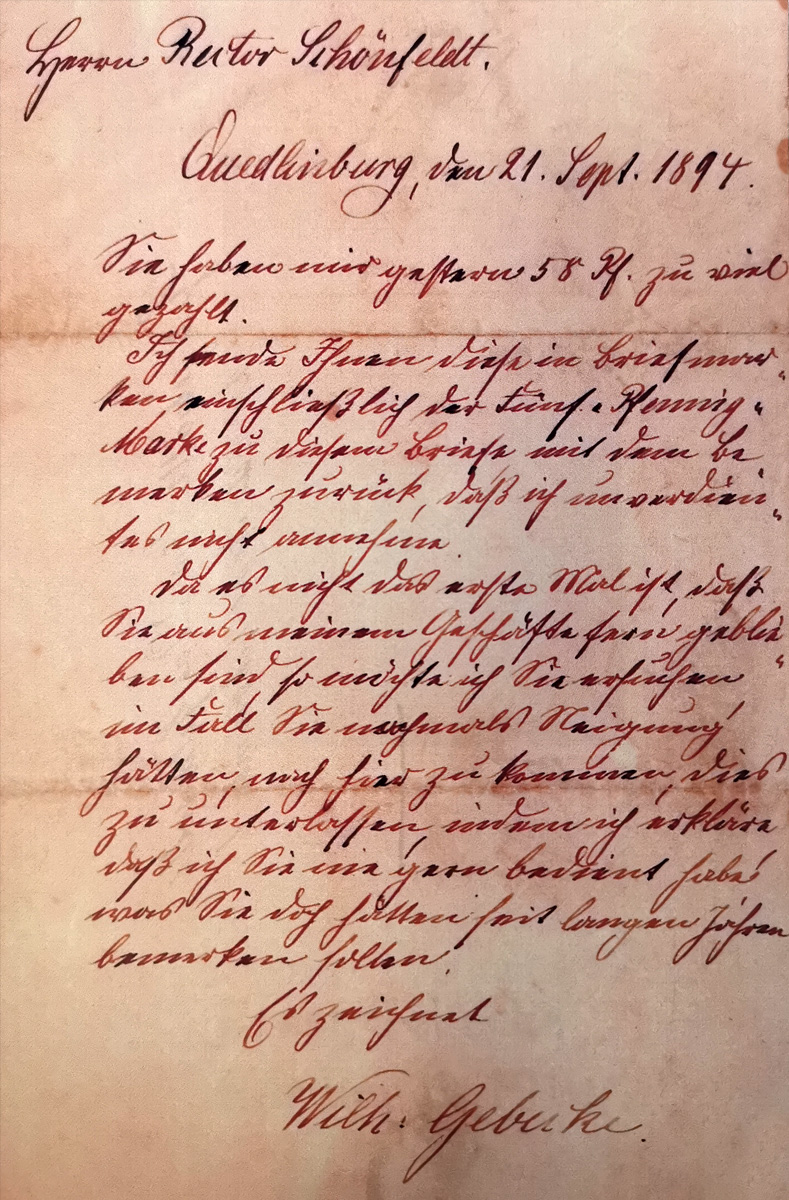 Herrn Rector Schönfeldt.
Quedlinburg, den 21. Sept. 1894.
Sie haben mir gestern 58 Pf. zu viel
gezahlt.
Ich sende Ihnen diese in Briefmar-
ken, einschließlich der Fünf-Pfennig-
Marke zu diesem Briefe mit dem Be
merken zurück, daß ich unverdien-
tes nicht annehme.
Da es nicht das erste Mal ist, daß
Sie aus meinem Geschäfte fern geblie-
ben sind, so möchte ich Sie ersuchen,
im Fall Sie nochmals Neigung
hätten, nach hier zu kommen, dies
zu unterlassen, indem ich erkläre,
daß ich Sie nie gern bedient habe,
was Sie doch hätten seit langen Jahren
bemerken sollen.
Es zeichnet
Wilh. Gebecke.